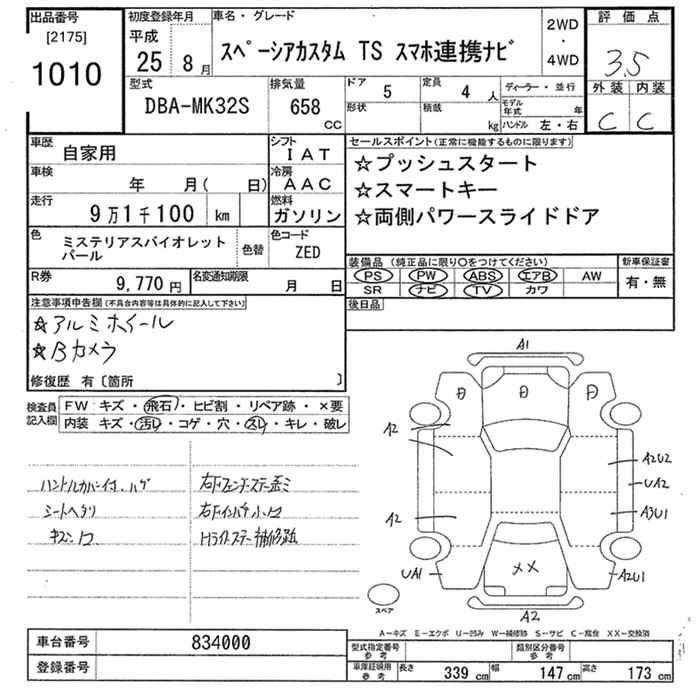 出品番号
[2175]
1010
初度登録年月
平成
25 8月
車名・グレード
スペーシアカスタム TS スマホ連携ナビ
2WD
・
4WD
評価点
3.5
外装 内装
C C
型式
DBA-MK32S
排気量
658
CC
ドア 5
定員 4 人
形状
積載 kg
ディーラー・並行
モデル年式 年
ハンドル 左・右
車歴 自家用
シフト IAT
車検 年 月( 日)
冷房 AAC
走行 9万1千100 km
燃料 ガソリン
色 ミステリアスバイオレット
パール
色替
色コード ZED
R券 9,770円
名変通知期限 月 日
セールスポイント(正常に機能するものに限ります)
☆プッシュスタート
☆スマートキー
☆両側パワースライドドア
装備品(純正品に限り○をつけてください)
PS PW ABS エアB AW
SR ナビ TV カワ
新車保証書
有・無
後日品
注意事項申告欄(不具合内容等は具体的に記入して下さい)
☆アルミホイール
☆Bカメラ
修復歴 有〔箇所 〕
検査員記入欄
FW:キズ・飛石・ヒビ割・リペア跡・×要
内装:キズ・汚レ・コゲ・穴・スレ・キレ・破レ
ハンドルカバー付、ハゲ
シートヘタリ
右Fフェンダーステー歪ミ
右Fインパネ小凹
Hライトステー補修跡
A1
A2
A2
UA1
A2U2
UA2
A3U1
A2U1
A2
日 日 日
××
スペア
A-キズ E-エクボ U-凹み W-補修跡 S-サビ C-腐食 XX-交換済
車台番号 834000
登録番号
型式指定番号
参考
類別区分番号
参考
車庫証明用
参考
長さ 339 cm 幅 147 cm 高さ 173 cm